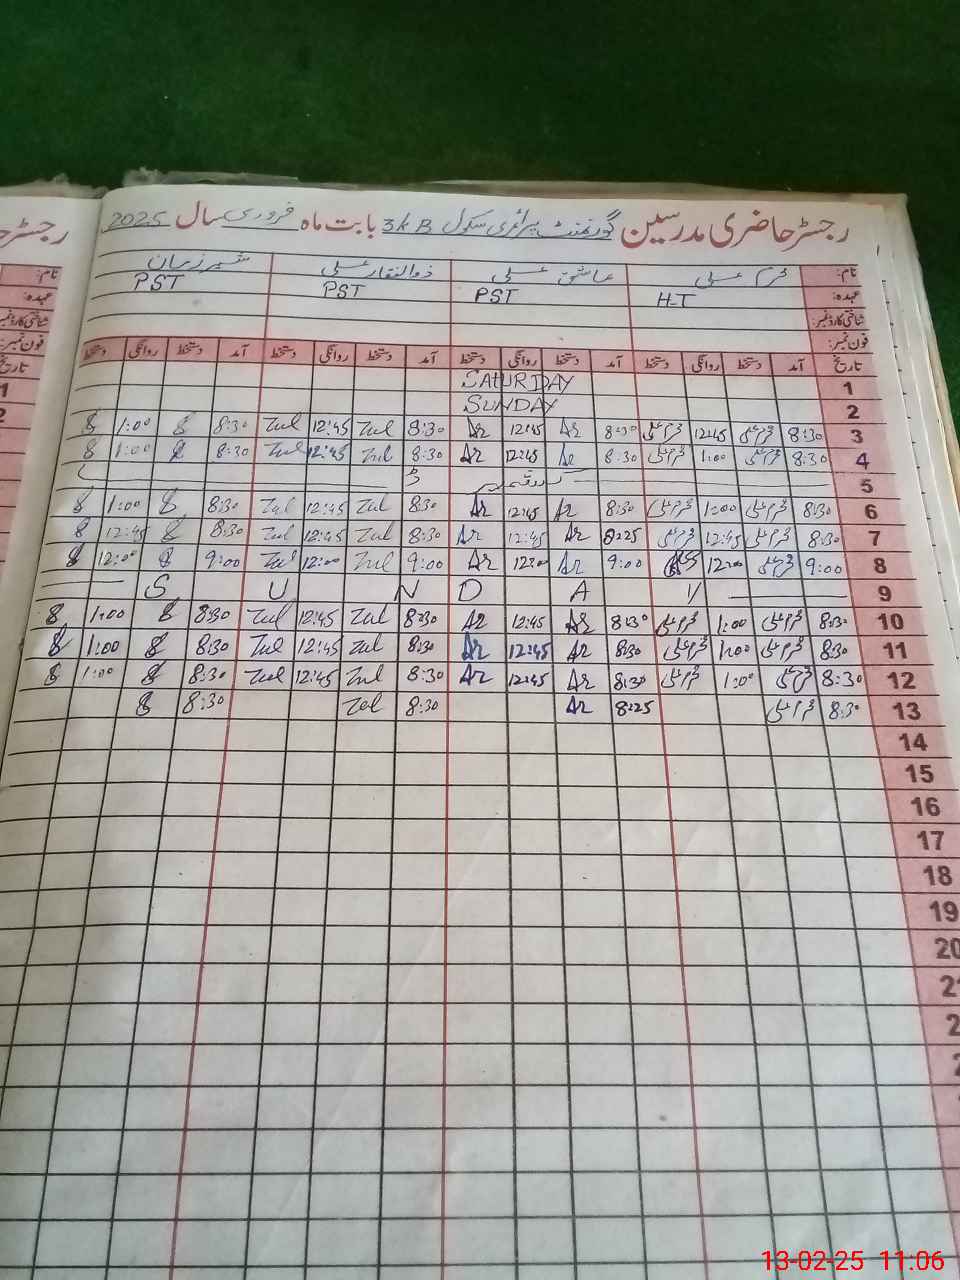 رجسٹر حاضری مدرسین گورنمنٹ پرائمری سکول 3kB بابت ماہ فروری سال 2025
نام: خرم علی عاشق علی ذوالفقار علی
عہدہ: H-T PST PST PST
شناختی کارڈ نمبر:
فون نمبر:
تاریخ آمد دستخط روانگی دستخط آمد دستخط روانگی دستخط آمد دستخط روانگی دستخط آمد دستخط روانگی دستخط
1 SATURDAY
2 SUNDAY
3 8:30 خرم علی 12:45 خرم علی 8:30 Ar 12:45 Ar 8:30 Zul 12:45 Zul 8:30 1:00
4 8:30 خرم علی 1:00 خرم علی 8:30 Ar 12:45 Ar 8:30 Zul 12:45 Zul 8:30 1:00
5
6 8:30 خرم علی 1:00 خرم علی 8:30 Ar 12:45 Ar 8:30 Zul 12:45 Zul 8:30 1:00
7 8:30 خرم علی 12:45 خرم علی 8:25 Ar 12:45 Ar 8:30 Zul 12:45 Zul 8:30 12:45
8 9:00 خرم علی 12:00 9:00 Ar 12:00 Ar 9:00 Zul 12:00 Zul 9:00 12:00
9 S U N D A Y
10 8:30 خرم علی 1:00 خرم علی 8:30 Ar 12:45 Ar 8:30 Zul 12:45 Zul 8:30 1:00
11 8:30 خرم علی 1:00 خرم علی 8:30 Ar 12:45 Ar 8:30 Zul 12:45 Zul 8:30 1:00
12 8:30 خرم علی 1:00 خرم علی 8:30 Ar 12:45 Ar 8:30 Zul 12:45 Zul 8:30 1:00
13 8:30 خرم علی 8:25 Ar 8:30 Zul 8:30
14
15
16
17
18
19
20
13-02-25 11:06